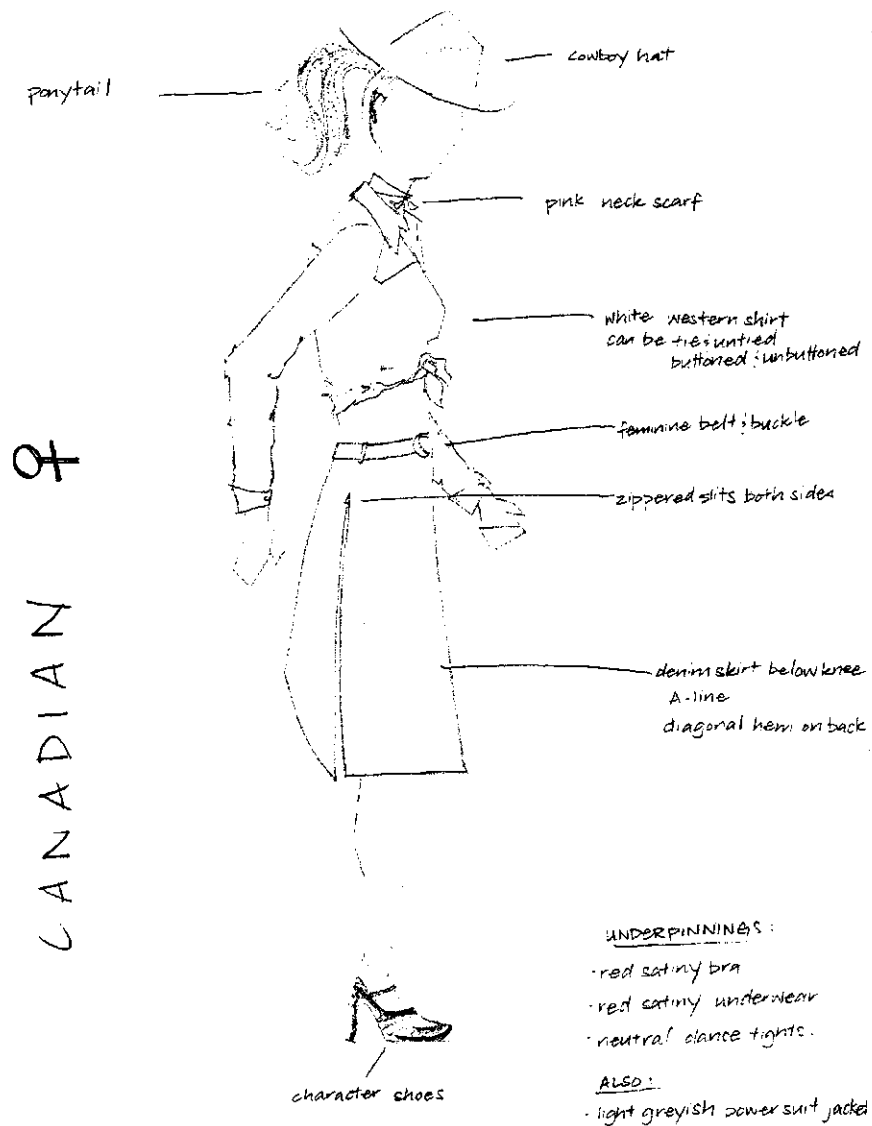 cowboy hat
ponytail
pink neck scarf
white western shirt
can be tie:untied
buttoned:unbuttoned
feminine belt:buckle
zippered slits both sides
denim skirt below knee
A-line
diagonal hem on back
CANADIAN ♀
UNDERPINNINGS:
·red satiny bra
·red satiny underwear
·neutral dance tights.
character shoes
ALSO:
·light greyish power suit jacket